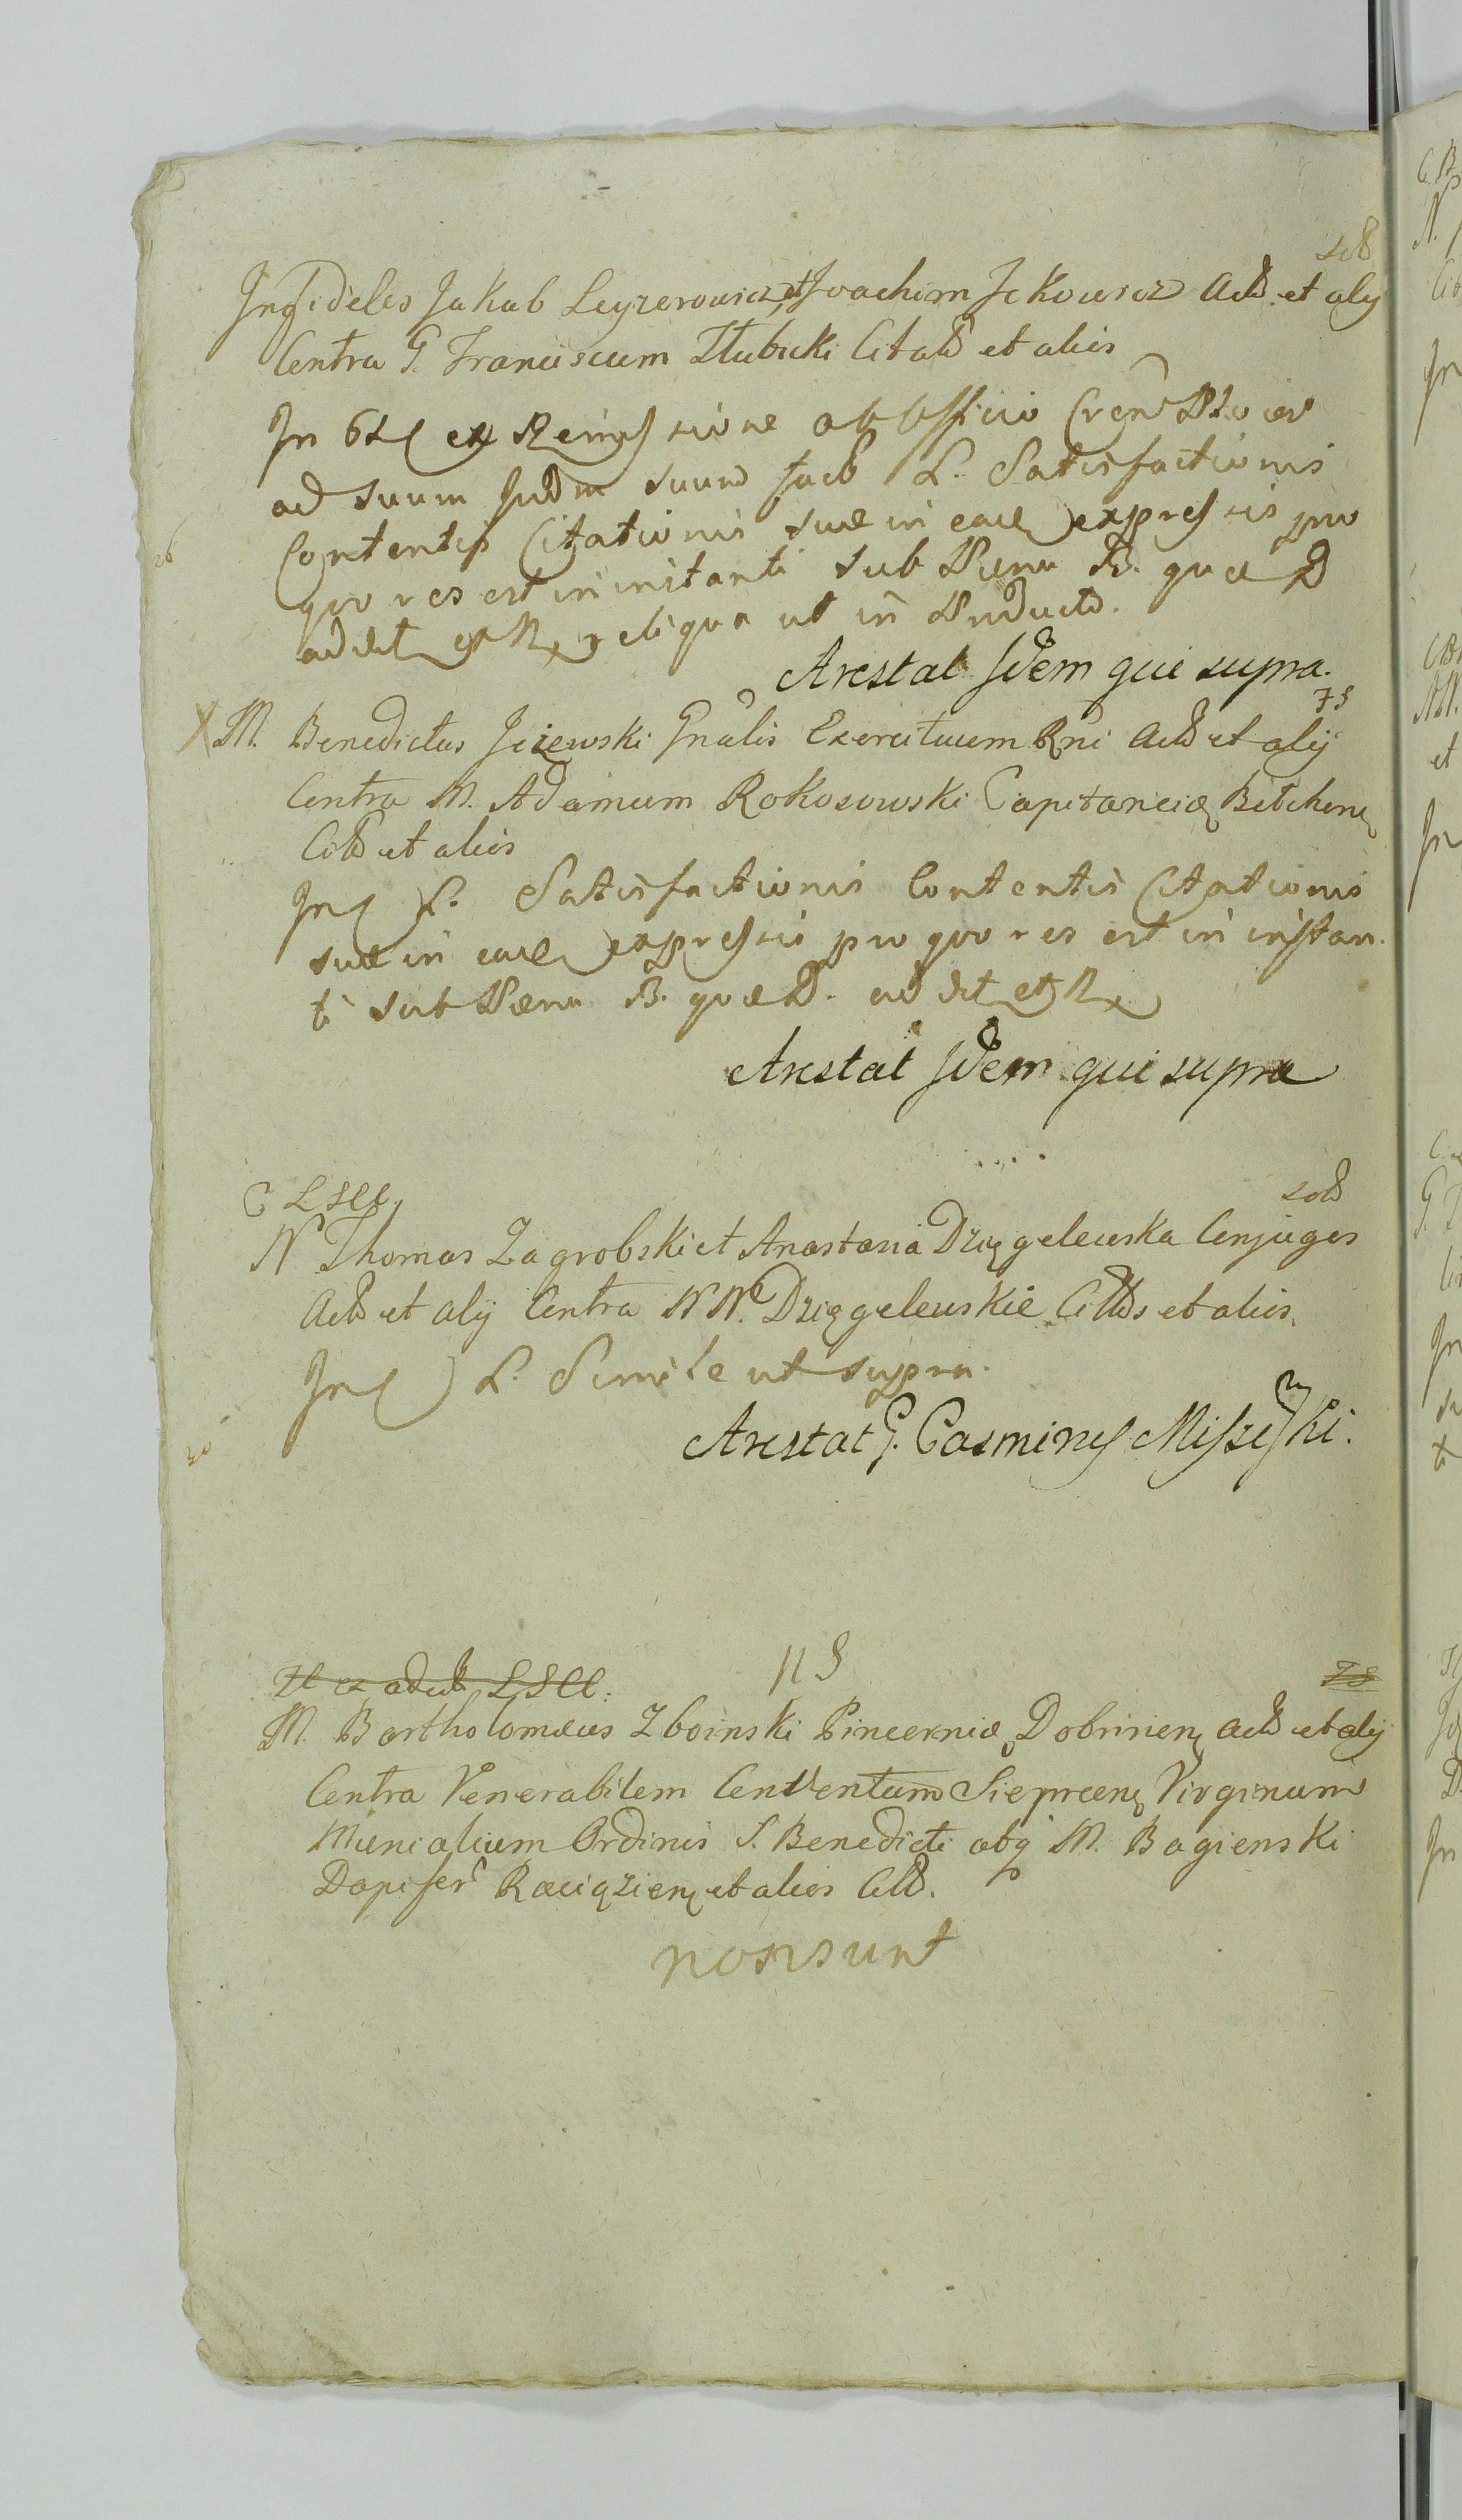 sod
Infideles Jakub Leyzerowicz, et Joachim Jckowicz Acto. et alÿ
Contra G. Franciscum Słubicki Citatô et alios
ex Remissione ab Officio
ad suum Judm suum L. Satisfactionis
Contentis Citationis suae in eaq expressis pro
quo res est in instanti sub Paena B. quae D
addit et reliqua ut in Producto.
Arestat Jdem qui supra.
75
X M. Benedictus Jeżewski Gnalis Exercituum Rni Actô et alÿ
Contra M. Adamum Rokosowski Capitaneidę
Citô et alios
In L. Satisfactionis Contentis Citationis
suae in eaq expressis pro quo res est in instan
ti sub Paena B. quae D. addit et R
Arestat Jdem qui supra
C LSCC
sod
N Thomas Zagrobski et Anastasia Dzięgelewska Conjuges
Actô et alÿ Contra NN. Dzięgelewskie Cittôs et alios.
In L. Simile ut supra.
Arestat G. Casmirus
115
LSCC.
75
M. Bartholomaeus Zboinski Pincernidę Dobrinenę Actô et alÿ
Contra Venerabilem Conventum Sieprcenę Virginum
Monialium Ordinis S. Benedicti atq M. Bagienski
Dapiferi Raciązienę et alios Citô.
non sunt